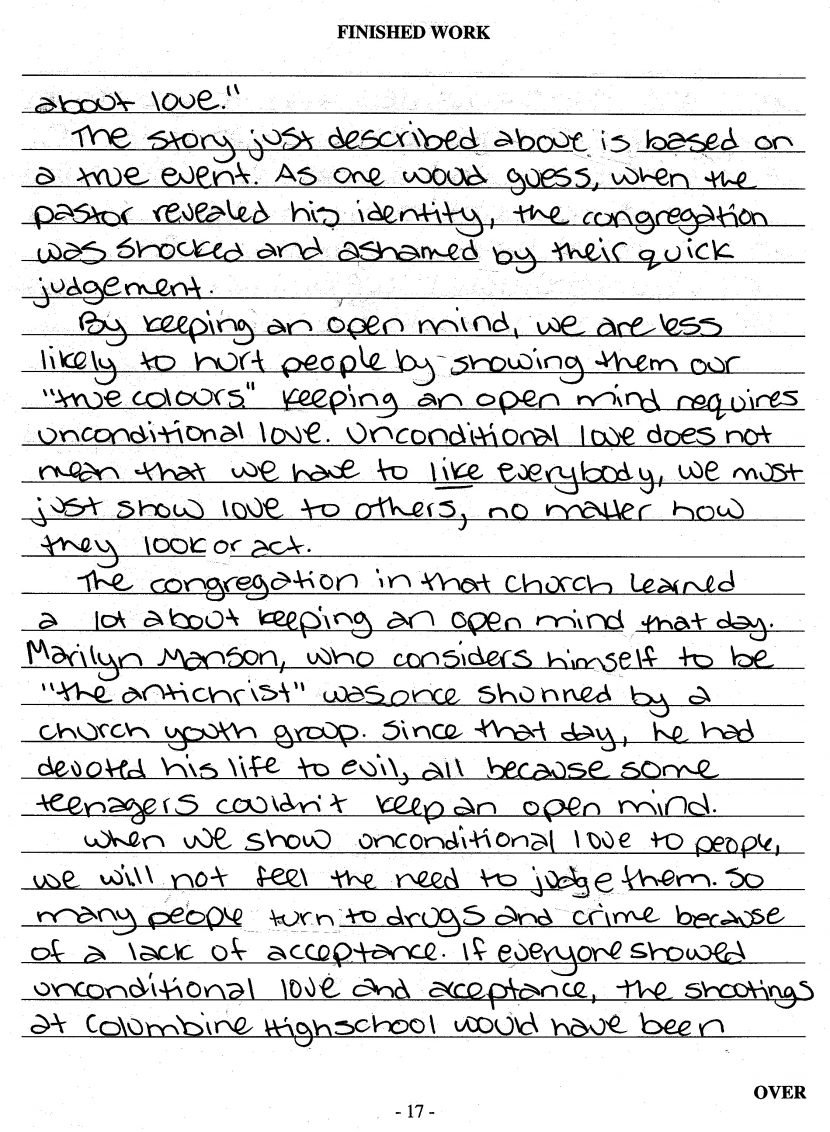 FINISHED WORK
about love."
The story just described above is based on
a true event. As one would guess, when the
pastor revealed his identity, the congregation
was shocked and ashamed by their quick
judgement.
By keeping an open mind, we are less
likely to hurt people by showing them our
"true colours." Keeping an open mind requires
unconditional love. Unconditional love does not
mean that we have to like everybody, we must
just show love to others, no matter how
they look or act.
The congregation in that church learned
a lot about keeping an open mind that day.
Marilyn Manson, who considers himself to be
"the antichrist" was once shunned by a
church youth group. Since that day, he had
devoted his life to evil, all because some
teenagers couldn't keep an open mind.
When we show unconditional love to people,
we will not feel the need to judge them. So
many people turn to drugs and crime because
of a lack of acceptance. If everyone showed
unconditional love and acceptance, the shootings
at Columbine Highschool would have been
OVER
- 17 -